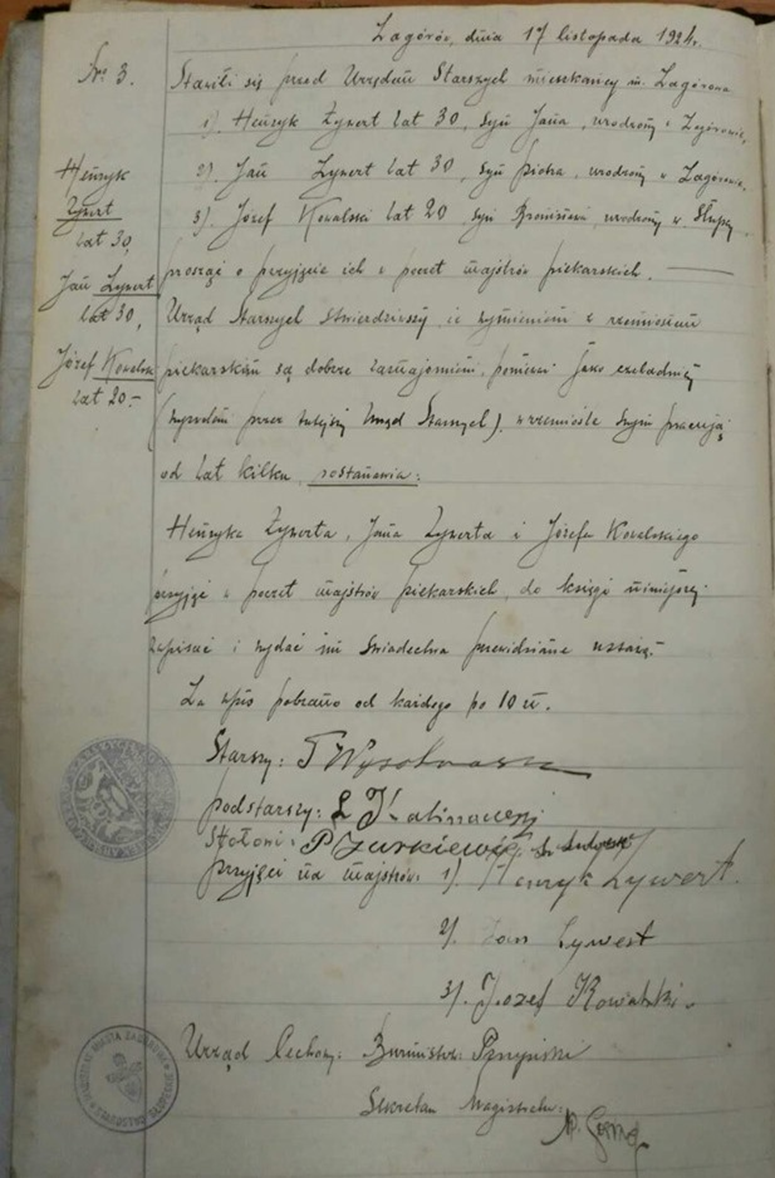 Zagórów, dnia 17 listopada 1924 r.
No 3.
Stawili się przed Urzędem Starszych mieszkańcy m. Zagórowa
1). Henryk Zywert lat 30, syn Jana, urodzony w Zagórowie,
2). Jan Zywert lat 30, syn Piotra, urodzony w Zagórowie,
3). Józef Kowalski lat 20, syn Bronisława, urodzony w Słupcy
prosząc o przyjęcie ich w poczet majstrów piekarskich.
Henryk
Zywert
lat 30,
Jan Zywert
lat 30,
Józef Kowalski
lat 20.-
Urząd Starszych stwierdziwszy, że wymienieni z rzemiosłem
piekarskim są dobrze zaznajomieni, ponieważ jako czeladnicy
(wyzwoleni przez tutejszy Urząd Starszych), w rzemiośle swym pracują
od lat kilku, postanawia:
Henryka Zywerta, Jana Zywerta i Józefa Kowalskiego
przyjąć w poczet majstrów piekarskich, do księgi niniejszej
zapisać i wydać im świadectwa przewidziane ustawą.-
Za wpis pobrano od każdego po 10 zł.
Starszy:
podstarszy:
Stołowi:
przyjęci na majstrów: 1). Henryk Zywert.
2). Jan Zywert
3). Jozef Kowalski.
Urząd Cechowy: Burmistrz:
Sekretarz Magistratu: